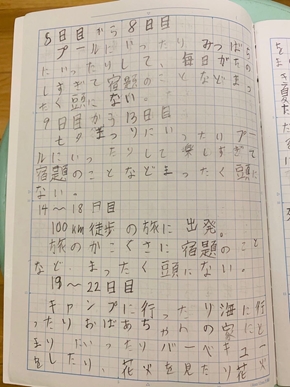 5日目から8日目
プールにいったり みつばちの
にいったりして、毎日がたの
しすぎて宿題のことなどまっ
たく頭にない。
9日目から13日目
七夕まつりにいったりプー
ルにいったりして楽しすぎて
宿題のことなどまったく頭に
ない。
14〜18日目
100km徒歩の旅に出発。
旅のかこくさに宿題のこと
など、まったく頭にない。
19〜22日目
キャンプに行ったり海に行
ったりおばあちゃんの家にと
まりにいったりバーベキュー
をしたり、花火を見たり花火